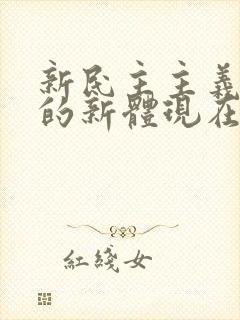 新民主主義
的新體現在
紅綫女